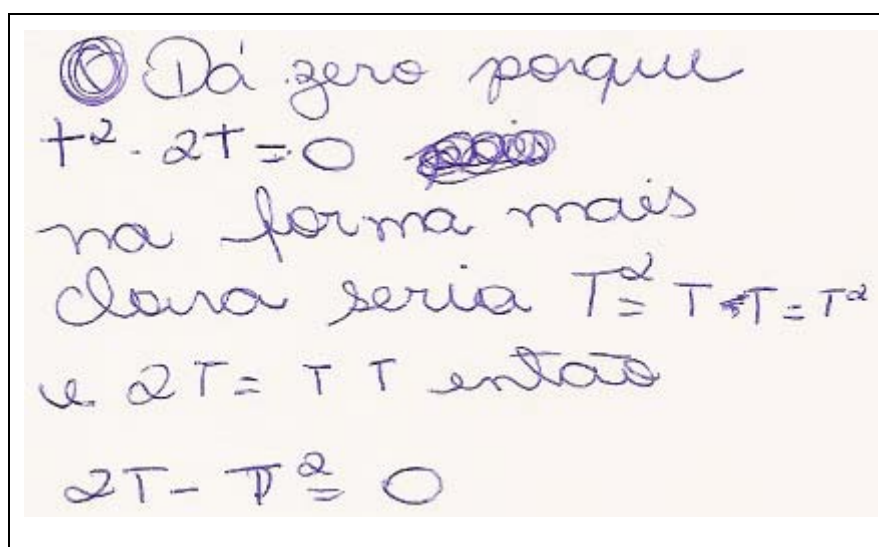 Dá zero porque
t² - 2T = 0
na forma mais
clara seria T² = T T = T²
e 2T = T T então
2T - T² = 0